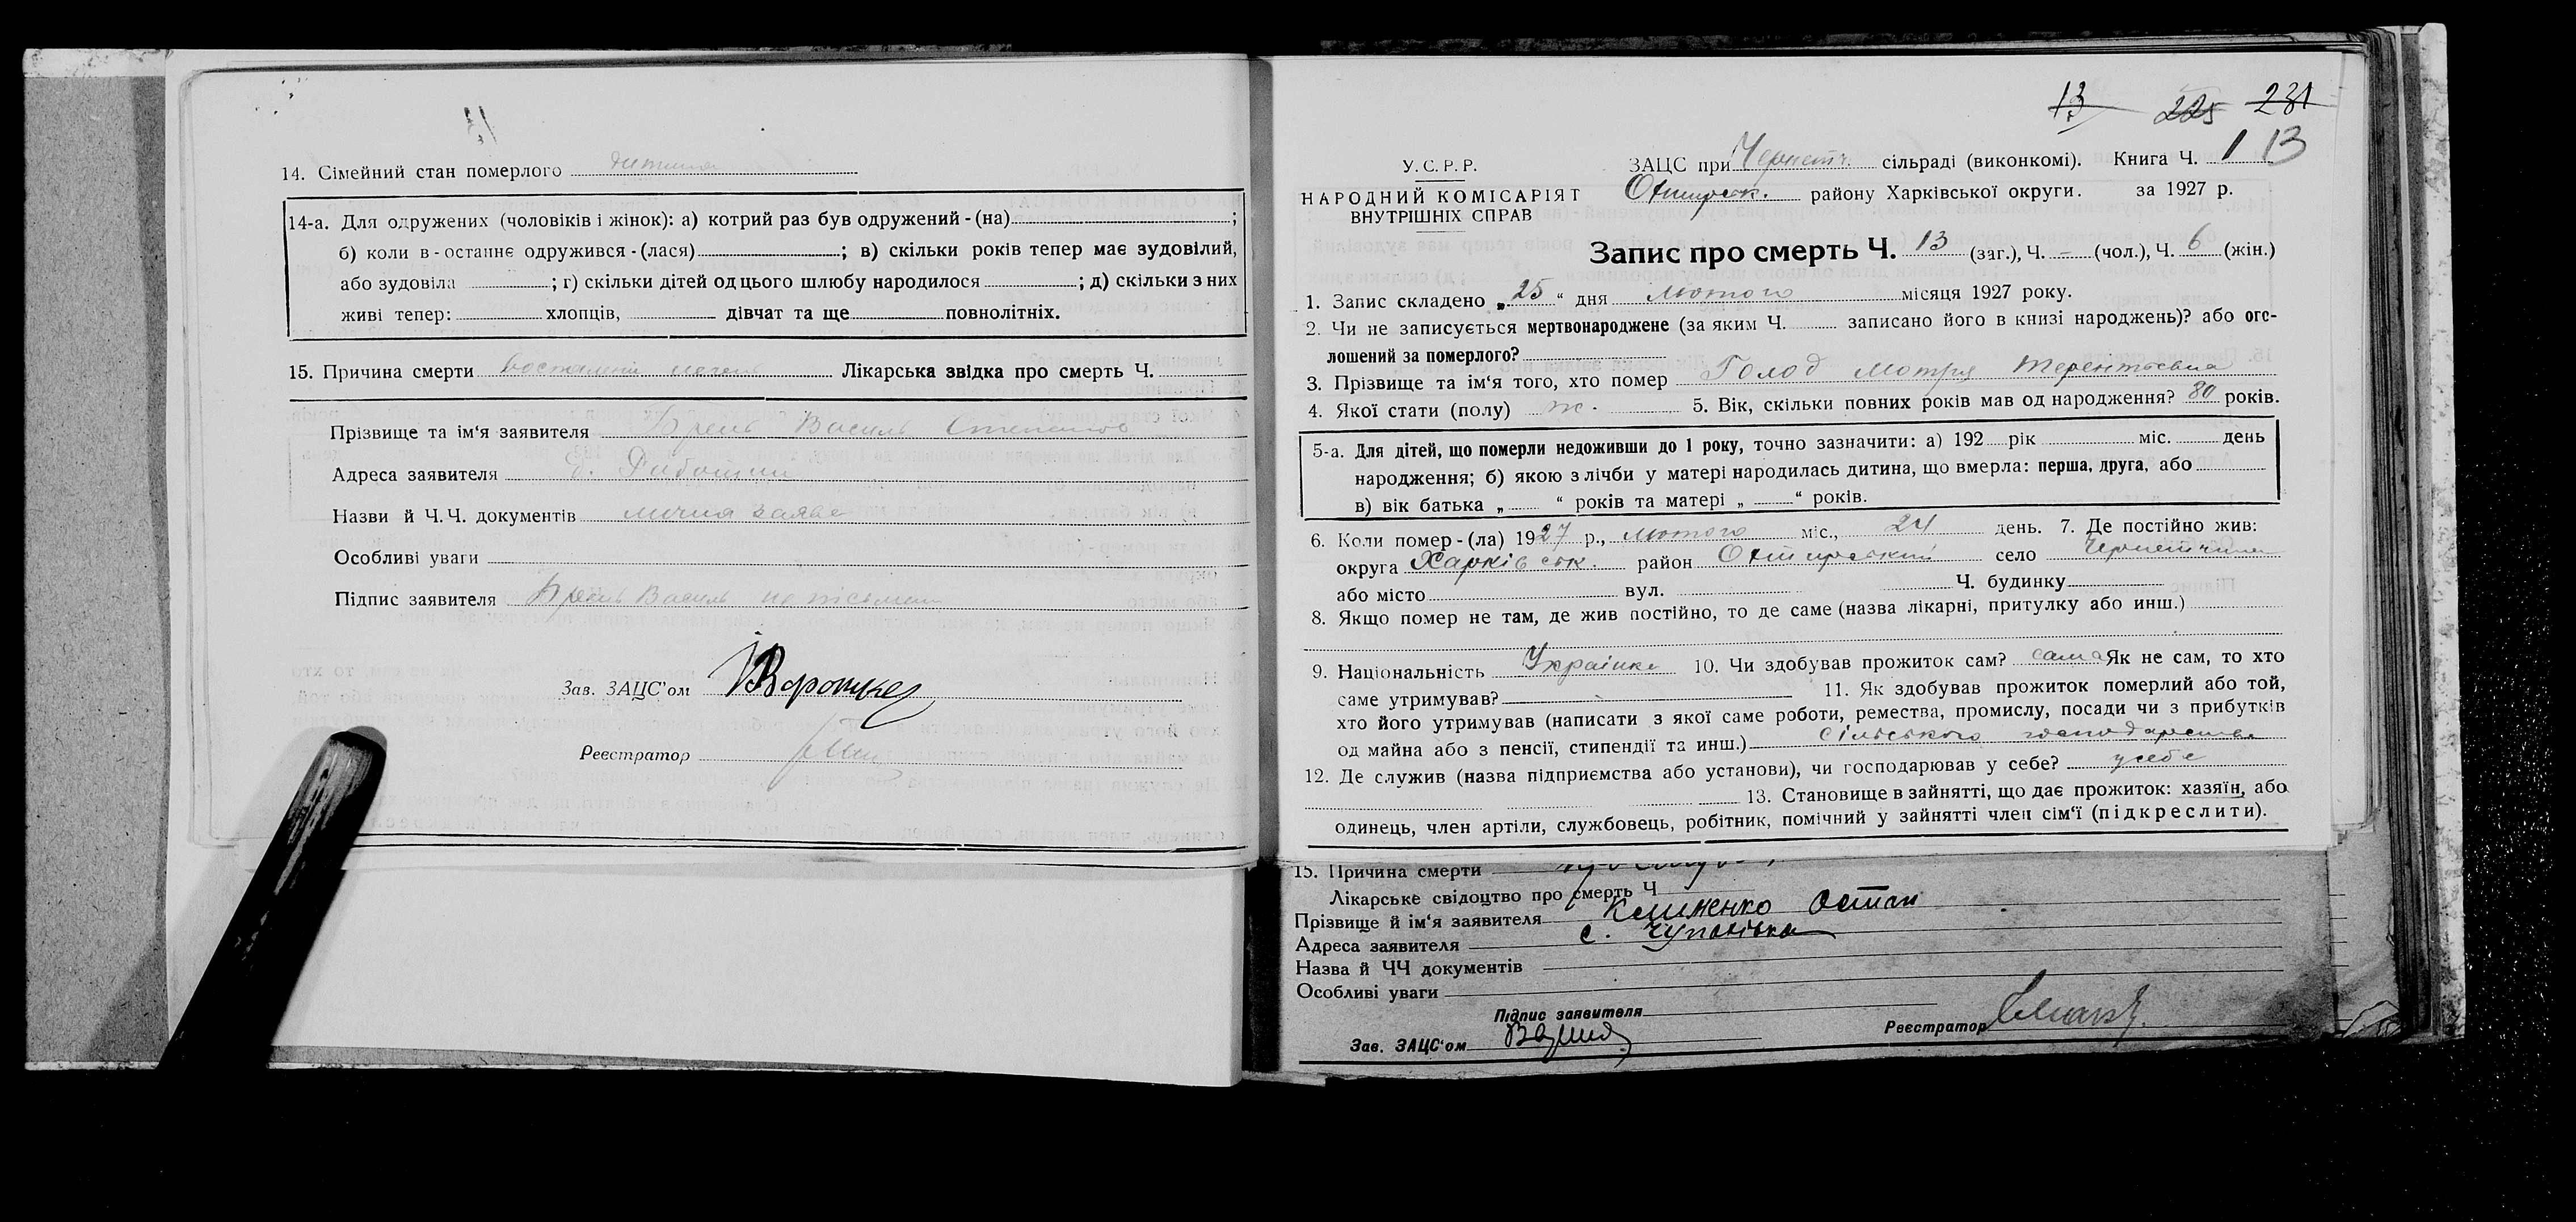 14. Сімейний стан померлого дитина
14-а. Для одружених (чоловіків і жінок): а) котрий раз був одружений - (на) ;
б) коли в - останнє одружився - (лася) ; в) скільки років тепер має зудовілий,
або зудовіла ; г) скільки дітей од цього шлюбу народилося ; д) скільки з них
живі тепер: хлопців, дівчат та ще повнолітніх.
15. Причина смерти Лікарська звідка про смерть Ч.
Прізвище та ім'я заявителя Василь
Адреса заявителя
Назви й Ч.Ч. документів лична заява
Особливі уваги
Підпис заявителя Василь не письмен
Зав. ЗАЦС'ом
Реєстратор
13 225 231
У.С.Р.Р.
НАРОДНИЙ КОМІСАРІЯТ
ВНУТРІШНІХ СПРАВ
ЗАЦС при Чернетч. сільраді (виконкомі). Книга Ч. 1 13
Охтирськ. району Харківської округи. за 1927 р.
Запис про смерть Ч. 13 (заг.), Ч. – (чол.), Ч. 6 (жін.)
1. Запис складено „25" дня лютого місяця 1927 року.
2. Чи не записується мертвонароджене (за яким Ч. записано його в книзі народжень)? або ого-
лошений за померлого?
3. Прізвище та ім'я того, хто помер Голод Мотря Терентьевна
4. Якої стати (полу) ж. 5. Вік, скільки повних років мав од народження? 80 років.
5-а. Для дітей, що померли недоживши до 1 року, точно зазначити: а) 192 рік міс. день
народження; б) якою з лічби у матері народилась дитина, що вмерла: перша, друга, або
в) вік батька „ " років та матері „ " років.
6. Коли помер - (ла) 1927 р., лютого міс., 24 день. 7. Де постійно жив:
округа Харківськ. район Охтирський село Чернетчина
або місто вул. Ч. будинку
8. Якщо помер не там, де жив постійно, то де саме (назва лікарні, притулку або инш.)
9. Національність Українка 10. Чи здобував прожиток сам? сама Як не сам, то хто
саме утримував? 11. Як здобував прожиток померлий або той,
хто його утримував (написати з якої саме роботи, ремества, промислу, посади чи з прибутків
од майна або з пенсії, стипендії та инш.) сільського господарства
12. Де служив (назва підприємства або установи), чи господарював у себе? у себе
13. Становище в зайнятті, що дає прожиток: хазяїн, або
одинець, член артіли, службовець, робітник, помічний у зайнятті член сім'ї (підкреслити).
15. Причина смерти
Лікарське свідоцтво про смерть Ч
Прізвище й ім'я заявителя Клименко Остап
Адреса заявителя с. Чупахівка
Назва й ЧЧ документів
Особливі уваги
Підпис заявителя
Зав. ЗАЦС'ом Реєстратор